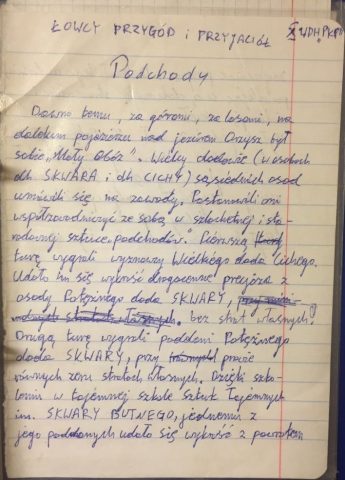 ŁOWCY PRZYGÓD i PRZYJACIÓŁ
X WDH "PKP"
Podchody
Dawno temu, za górami, za lasami, na
dalekim pojezierzu nad jeziorem Orzysz był
sobie "Mały Obóz". Wielcy dodowie (w osobach
dh. SKWARA i dh. CICHY) sąsiednich osad
umówili się na zawody. Postanowili oni
współzawodniczyć ze sobą w szlachetnej i sta-
rodawnej sztuce "podchodów". Pierwszą
turę wygrali wyznawcy Wielkiego doda Cichego.
Udało im się wykraść drogocenne precjoza z
osady Potężnego doda SKWARY,
bez strat własnych!
Drugą turę wygrali poddani Potężnego
doda SKWARY, przy prawie
równych zeru stratach własnych. Dzięki szko-
leniu w tajemnej szkole Sztuk Tajemnych
im. SKWARY BUTNEGO, jednemu z
jego poddanych udało się wykraść z powrotem